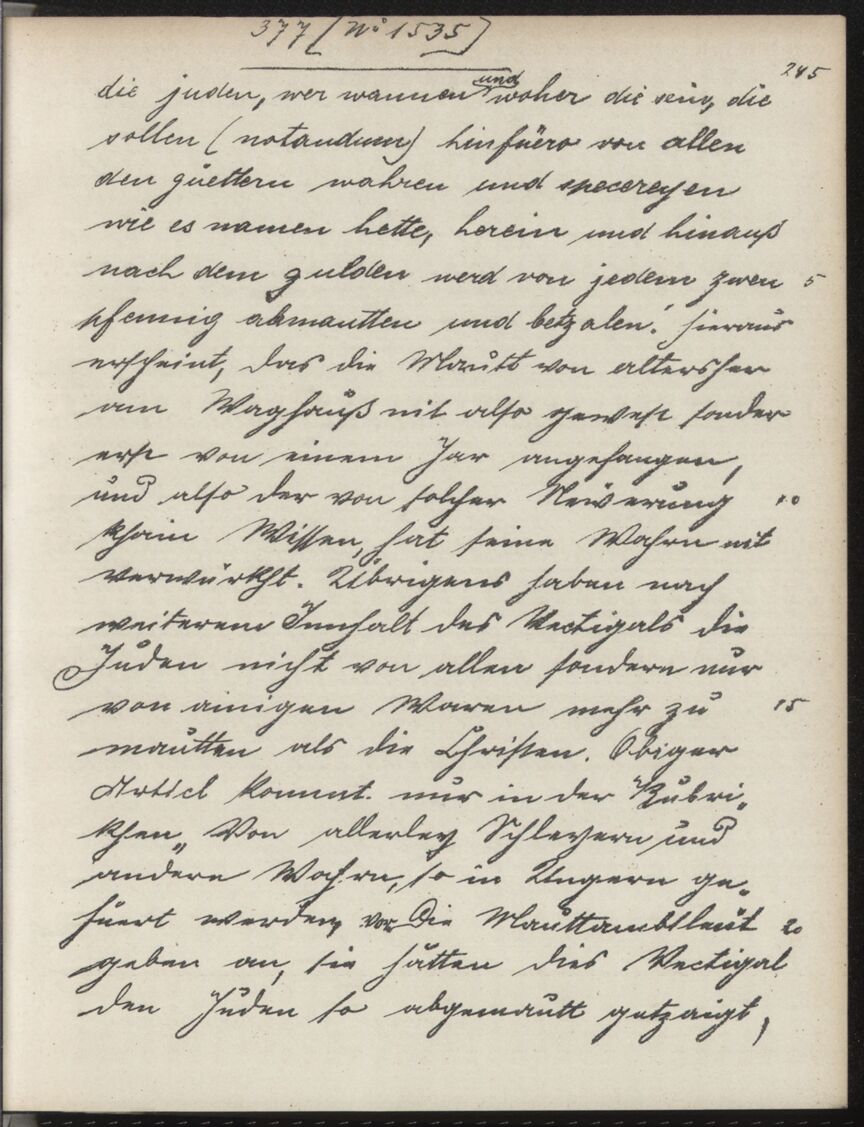 377 [No 1535]
245
die juden, wer wannen und woher die sein, die
sollen (notandum) hinfüero von allen
den güettern wahren und specereyen
wie es namen hette, herein und hinauß
nach dem gulden werd von jedem zwen 5
pfennig abmautten und betzalen. Hieraus
erscheint, das die Mautt von altersher
am Waghauß nit also gewest sonder
erst von einem Jar angefangen,
und also der von solcher Newerung 10
khain Wissen, hat seine Wahrn nit
verwürkht. Übrigens haben nach
weiterem Innhalt des Vectigals die
Juden nicht von allen sondern nur
von ainigen Waren mehr zu 15
mautten als die Christen. Obiger
Articl kommt nur in der Rubri„
khen „Von allerley Schleyern und
andern Wahrn, so in Ungern ge„
füert werden, vor. Die Mauttambtleut 20
geben an, sie hätten dies Vectigal
den Juden so abgemautt getzaigt,